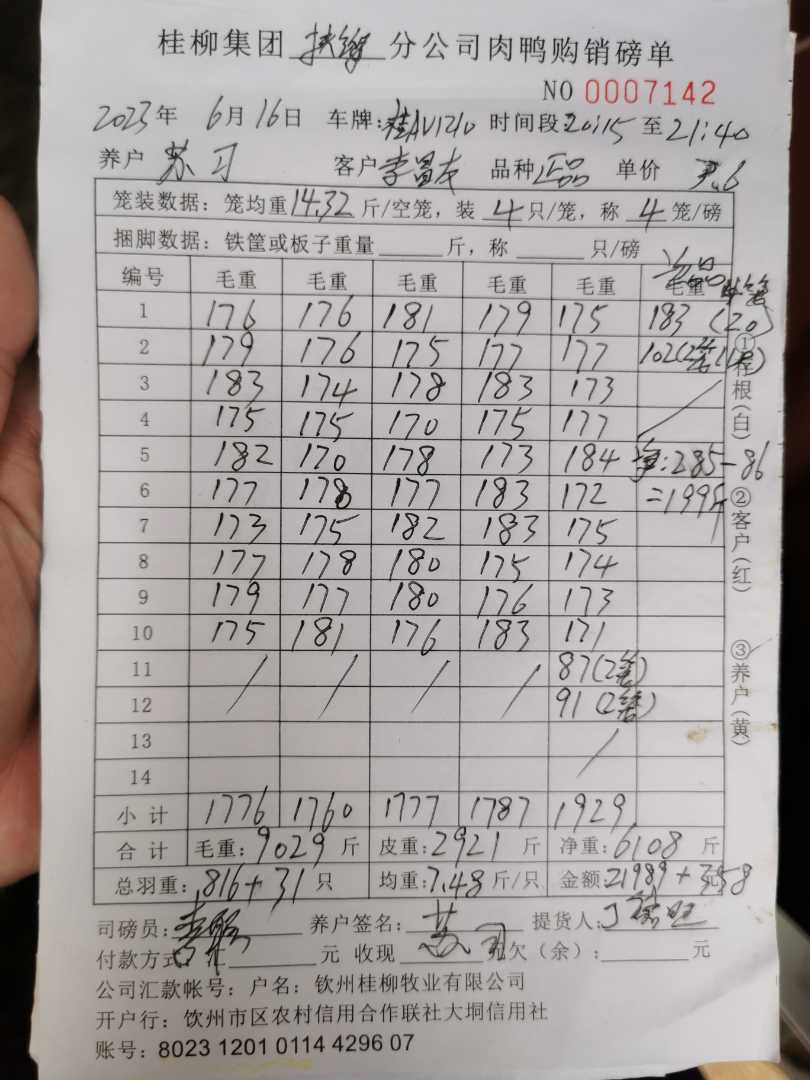 桂柳集团 扶绥 分公司肉鸭购销磅单
NO 0007142
2023年 6月16日 车牌:桂AV1210 时间段20:15至21:40
养户 苏习 客户李昌友 品种正品 单价 3.6
笼装数据:笼均重14.32斤/空笼,装 4 只/笼,称 4 笼/磅
捆脚数据:铁筐或板子重量 斤,称 只/磅
编号 毛重 毛重 毛重 毛重 毛重 毛重
1 176 176 181 179 175 183 (20)
2 179 176 175 177 177 102(2笼
3 183 174 178 183 173
4 175 175 170 175 177
5 182 170 178 173 184 净:285-86
6 177 178 177 183 172 =199斤
7 173 175 182 183 175
8 177 178 180 175 174
9 179 177 180 176 173
10 175 181 176 183 171
11 / / / / 87(2笼)
12 91(2笼)
13 /
14
小计 1776 1760 1777 1787 1929
合计 毛重:9029斤 皮重:2921斤 净重:6108斤
总羽重:816+31只 均重:7.48斤/只 金额:21989+358
司磅员: 养户签名:苏习 提货人:
付款方式:汇 元 收现 欠(余): 元
公司汇款帐号:户名:钦州桂柳牧业有限公司
开户行:钦州市区农村信用合作联社大垌信用社
账号:8023 1201 0114 4296 07
①存根(白) ②客户(红) ③养户(黄)